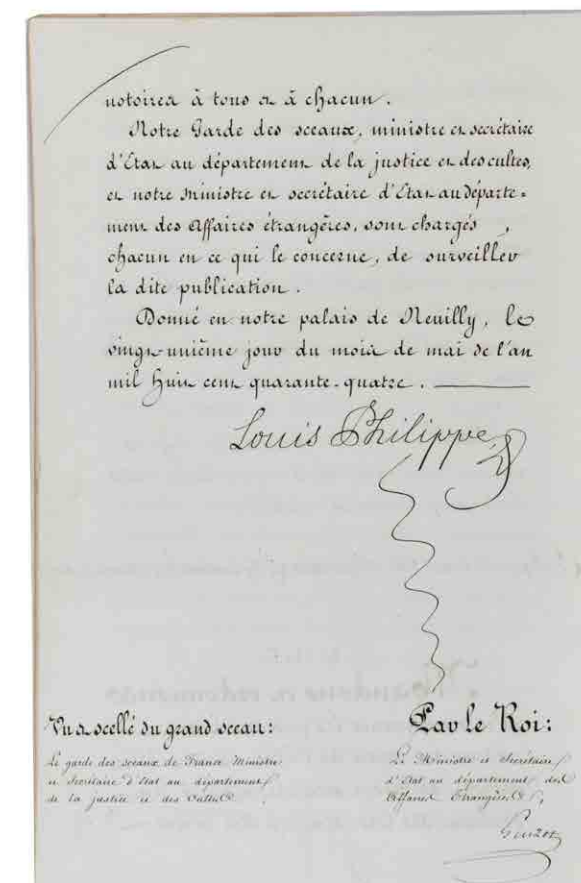 notoires à tous et à chacun.
Notre Garde des sceaux, ministre et secrétaire
d'Etat au département de la justice et des cultes,
et notre Ministre et secrétaire d'Etat au départe-
ment des Affaires étrangères, sont chargés,
chacun en ce qui le concerne, de surveiller
la dite publication.
Donné en notre palais de Neuilly, le
vingt-unième jour du mois de mai de l'an
mil huit cent quarante-quatre.
Louis Philippe
Vu & scellé du grand sceau:
Le garde des sceaux de France Ministre
et Secrétaire d'Etat au département
de la justice et des Cultes
Par le Roi:
Le Ministre et Secrétaire
d'Etat au département des
Affaires Etrangères,
Guizot